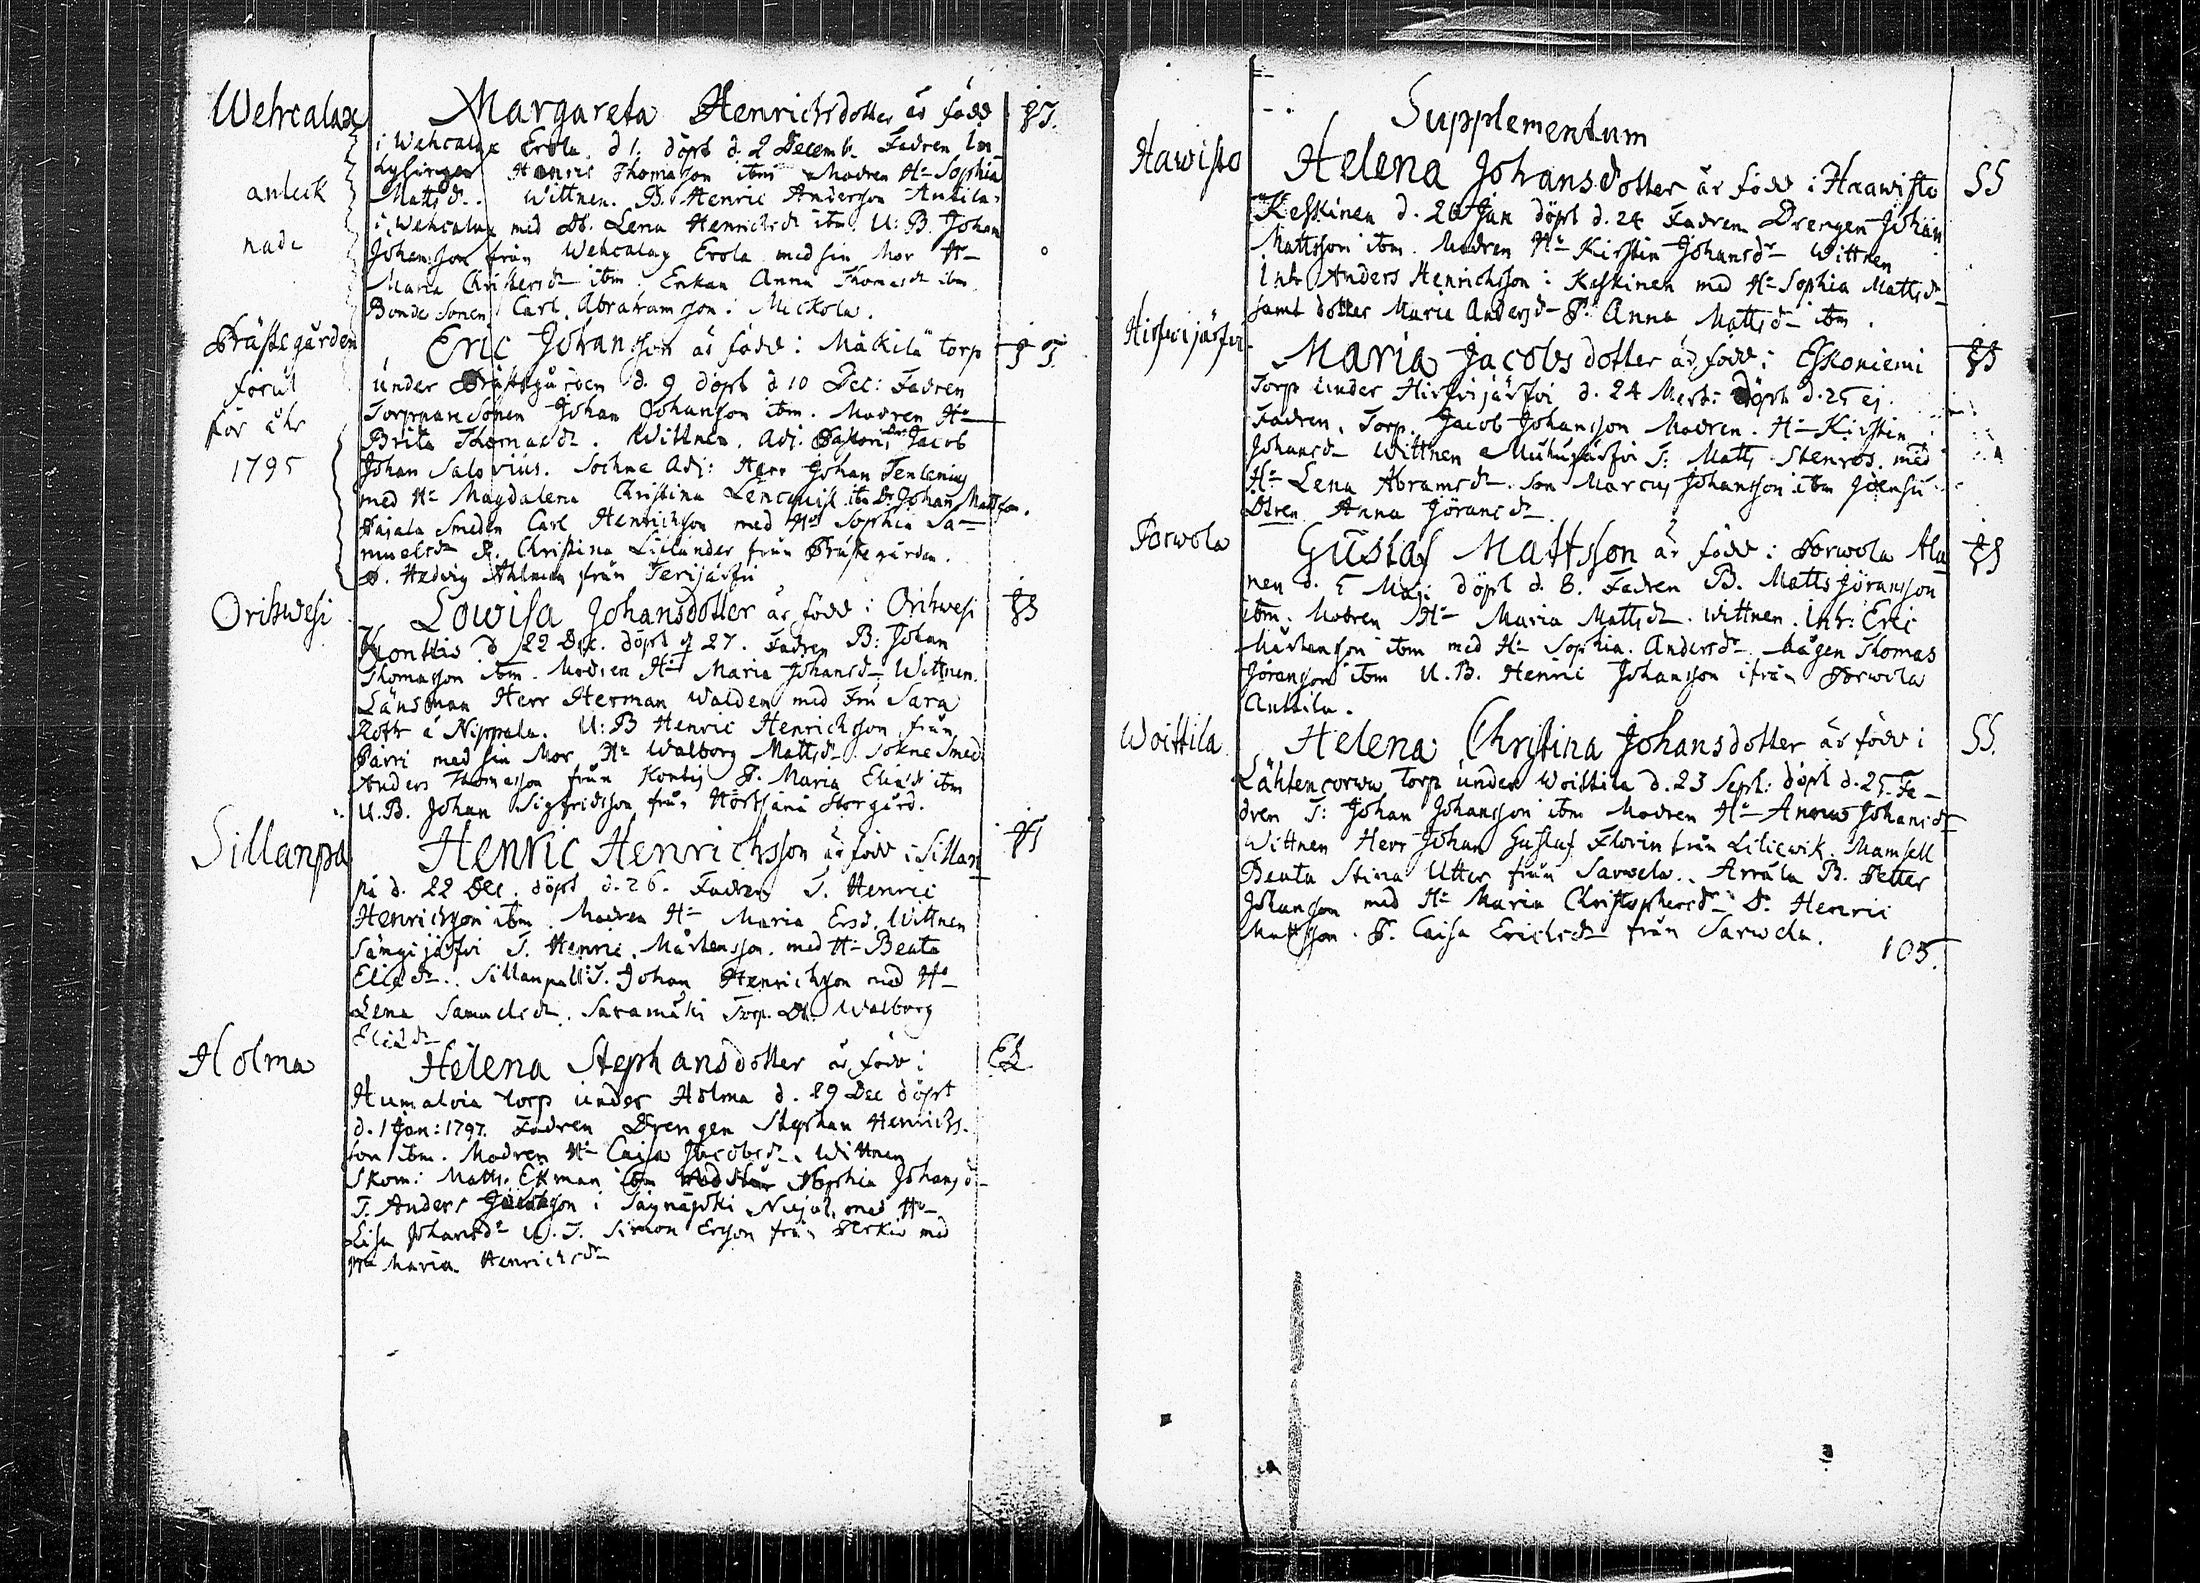 Wehcalax
Margareta Henrichsdotter är född
i Wehcalax Erola d 1. döpt d. 2 Decemb. Fadren In
hysingen Henric Thomasson ibm Modren H. Sophia
Mattsd. Wittnen. B. Henric Andersson Anttila
anteck
i Wehcalax med D. Lena Henrichsd ibm. U: B. Johan
nade
Johansson från Wehcalax Erola med sin Mor H.
Maria Christersd ibm. Enkan Anna Thomasd ibm
Bonde Sonen Carl Abrahamsson: Mickola.
Prästegården
förut
för åhr
1795
Eric Johansson är född: Mäkilä torp
under Prästegården d. 9 döpt d 10 Dec: Fadren
Torpman Sonen Johan Johansson ibm. Modren H.
Brita Thomasd. Wittnen. Adj. Pastoris Jacob
Johan Salovius. Sockne Adj: Herr Johan Tenlenius
med H. Magdalena Christina Lencquist ibm Dr. Johan Mattsson.
Pajala Smeden Carl Henrichson med H. Sophia Sa-
muelsd P. Christina Liliander från Prästegården.
P. Hedvig Ahlman från Terijärfvi
Orihwesi
Lowisa Johansdotter är född i Orihwesi
Konttis d 22 Dec. döpt d 27. Fadren B: Johan
Thomasson ibm. Modren H. Maria Johansd. Wittnen.
Länsman Herr Herman Walden med Fru Sara
Roth á Nippala. U: B Henric Henrichsson från
Pärri med sin Mor H. Walborg Mattsd. Sokne Smed
Anders Thomasson från Kontis P. Maria Eliasd ibm
U. B. Johan Sigfridsson från Hörtsänä Storgård.
Sillanpä
Henric Henrichsson är född i Sillan
pä d. 22 Dec. döpt d. 26. Fadren T. Henric
Henrichsson ibm. Modren H. Maria Ersd. Wittnen
Sängijärfvi T. Henric Mårtensson. med H. Beata
Eliasd. Sillanpää T. Johan Henrichson med H.
Lena Samuelsd. Saramäki Torp. D. Walborg
Eliasd
Holma
Helena Stephansdotter är född i
Humaloia torp under Holma d. 29 Dec döpt
d. 1 Jan: 1797. Fadren Drengen Stephan Henrichs.
son ibm. Modren H. Caisa Jacobsd. Wittnen
Skom: Matts Ekman ibm Sophia Johansd
T. Anders i med H.
Lisa Johansd U. T. Simon Ersson från Perkiö med
H. Maria Henrichsd
Supplementum
Hawisto
Helena Johansdotter är född i Haawisto
SS
Keskinen d. 20 Jan döpt d. 24 Fadren Drengen Johan
Mattsson ibm. Modren H. Kirstin Johansd. Wittnen
Inh: Anders Henrichsson: Keskinen med H. Sophia Mattsd
samt dotter Maria Andersd P. Anna Mattsd ibm.
Hirfvijärfvi
Maria Jacobs dotter är född: Eskoniemi
Torp under Hirfvijärfvi d. 24 Mart: döpt d. 25 ej.
Fadren. Torp. Jacob Johansson Modren. H. Kirstin
Johansd Wittnen Muhujärfvi T: Matts Stenros. med
H. Lena Abramsd. Son Marcus Johansson ibm
Dtren Anna Jöransd
Porwola
Gustaf Mattsson är född: Porwola Ala
nen d. 5 Maj: döpt d. 8. Fadren B. Matts Jöransson
ibm. Modren H. Maria Mattsd. Wittnen. Inh: Eric
Mårtenson ibm med H. Sophia. Andersd. Mågen Thomas
Jöransson ibm U. B. Henric Johansson ifrån Porwola
Anttila.
Woittila
Helena Christina Johansdotter är född i
SS.
Lähtencorwa Torp under Woittila d. 23 Sept: döpt d. 25. Fa-
dren T: Johan Johansson ibm Modren H. Anna Johansd
Wittnen Herr Johan Gustaf Florin från Liliewik. Mamsell
Beata Stina Utter från Sarwela. Arräla B. Petter
Johanson med H. Maria Christophersd. D. Henric
Mattsson. P. Caisa Erichsd från Sarwela.
105.